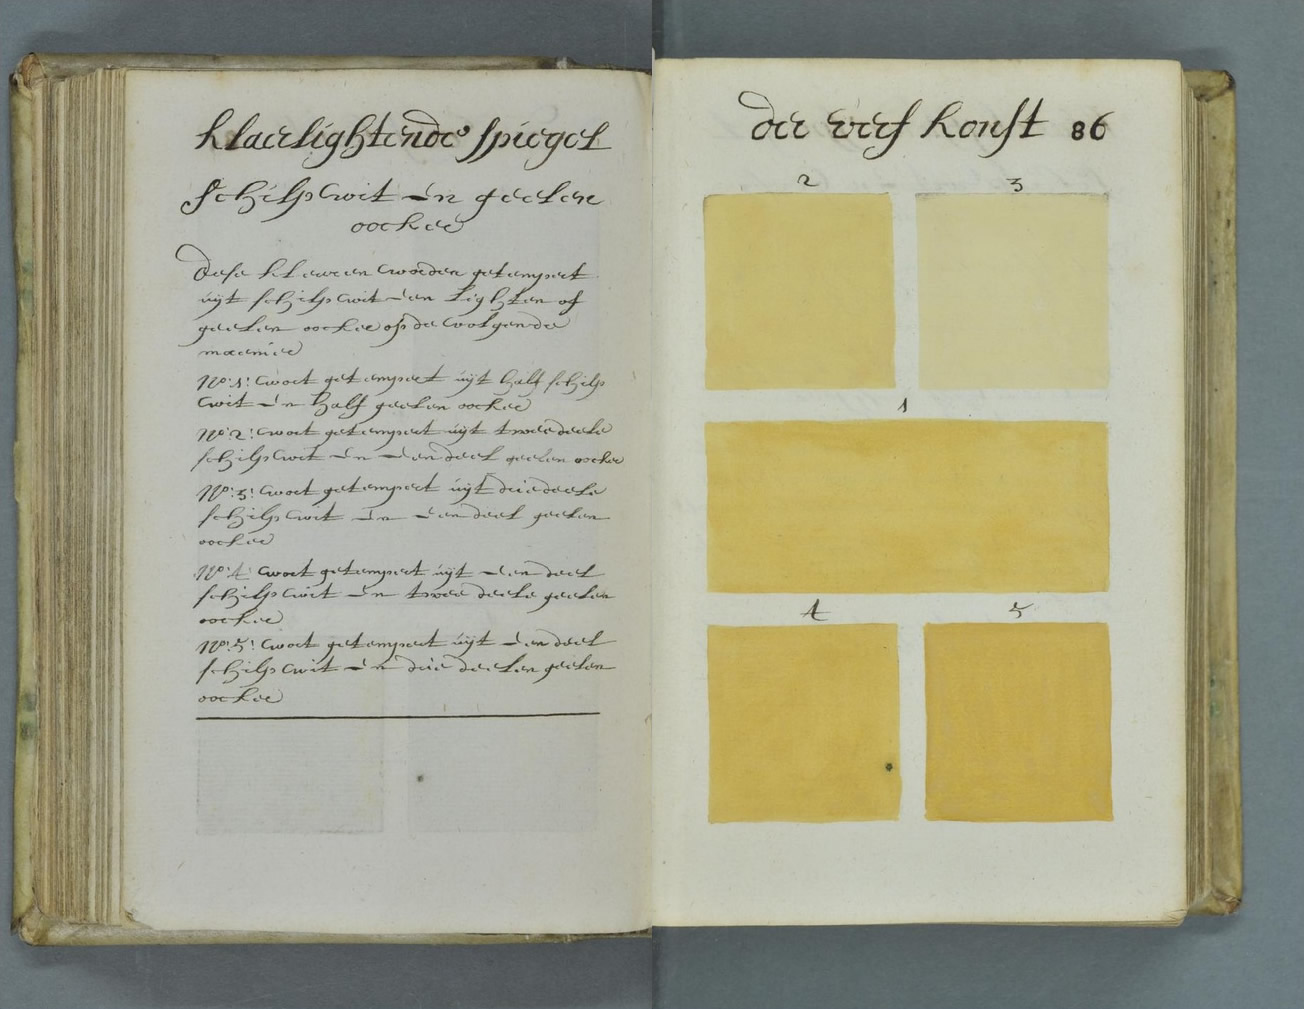 klaerlightende spiegel
schilpwit en geelen
oocker
Dese kleuren worden getempert
uijt schilpwit en lighten of
geelen oocker op de volgende
manier
No: 1: wort getempert uijt half schilp
wit en half geelen oocker
No: 2: wort getempert uijt twee deele
schilpwit en een deel geelen oocker
No: 3: wort getempert uijt drie deele
schilpwit en een deel geelen
oocker
No: 4: wort getempert uijt een deel
schilpwit en twee deele geelen
oocker
No: 5: wort getempert uijt een deel
schilpwit en drie deelen geelen
oocker
der verf konst 86
2 3
1
4 5